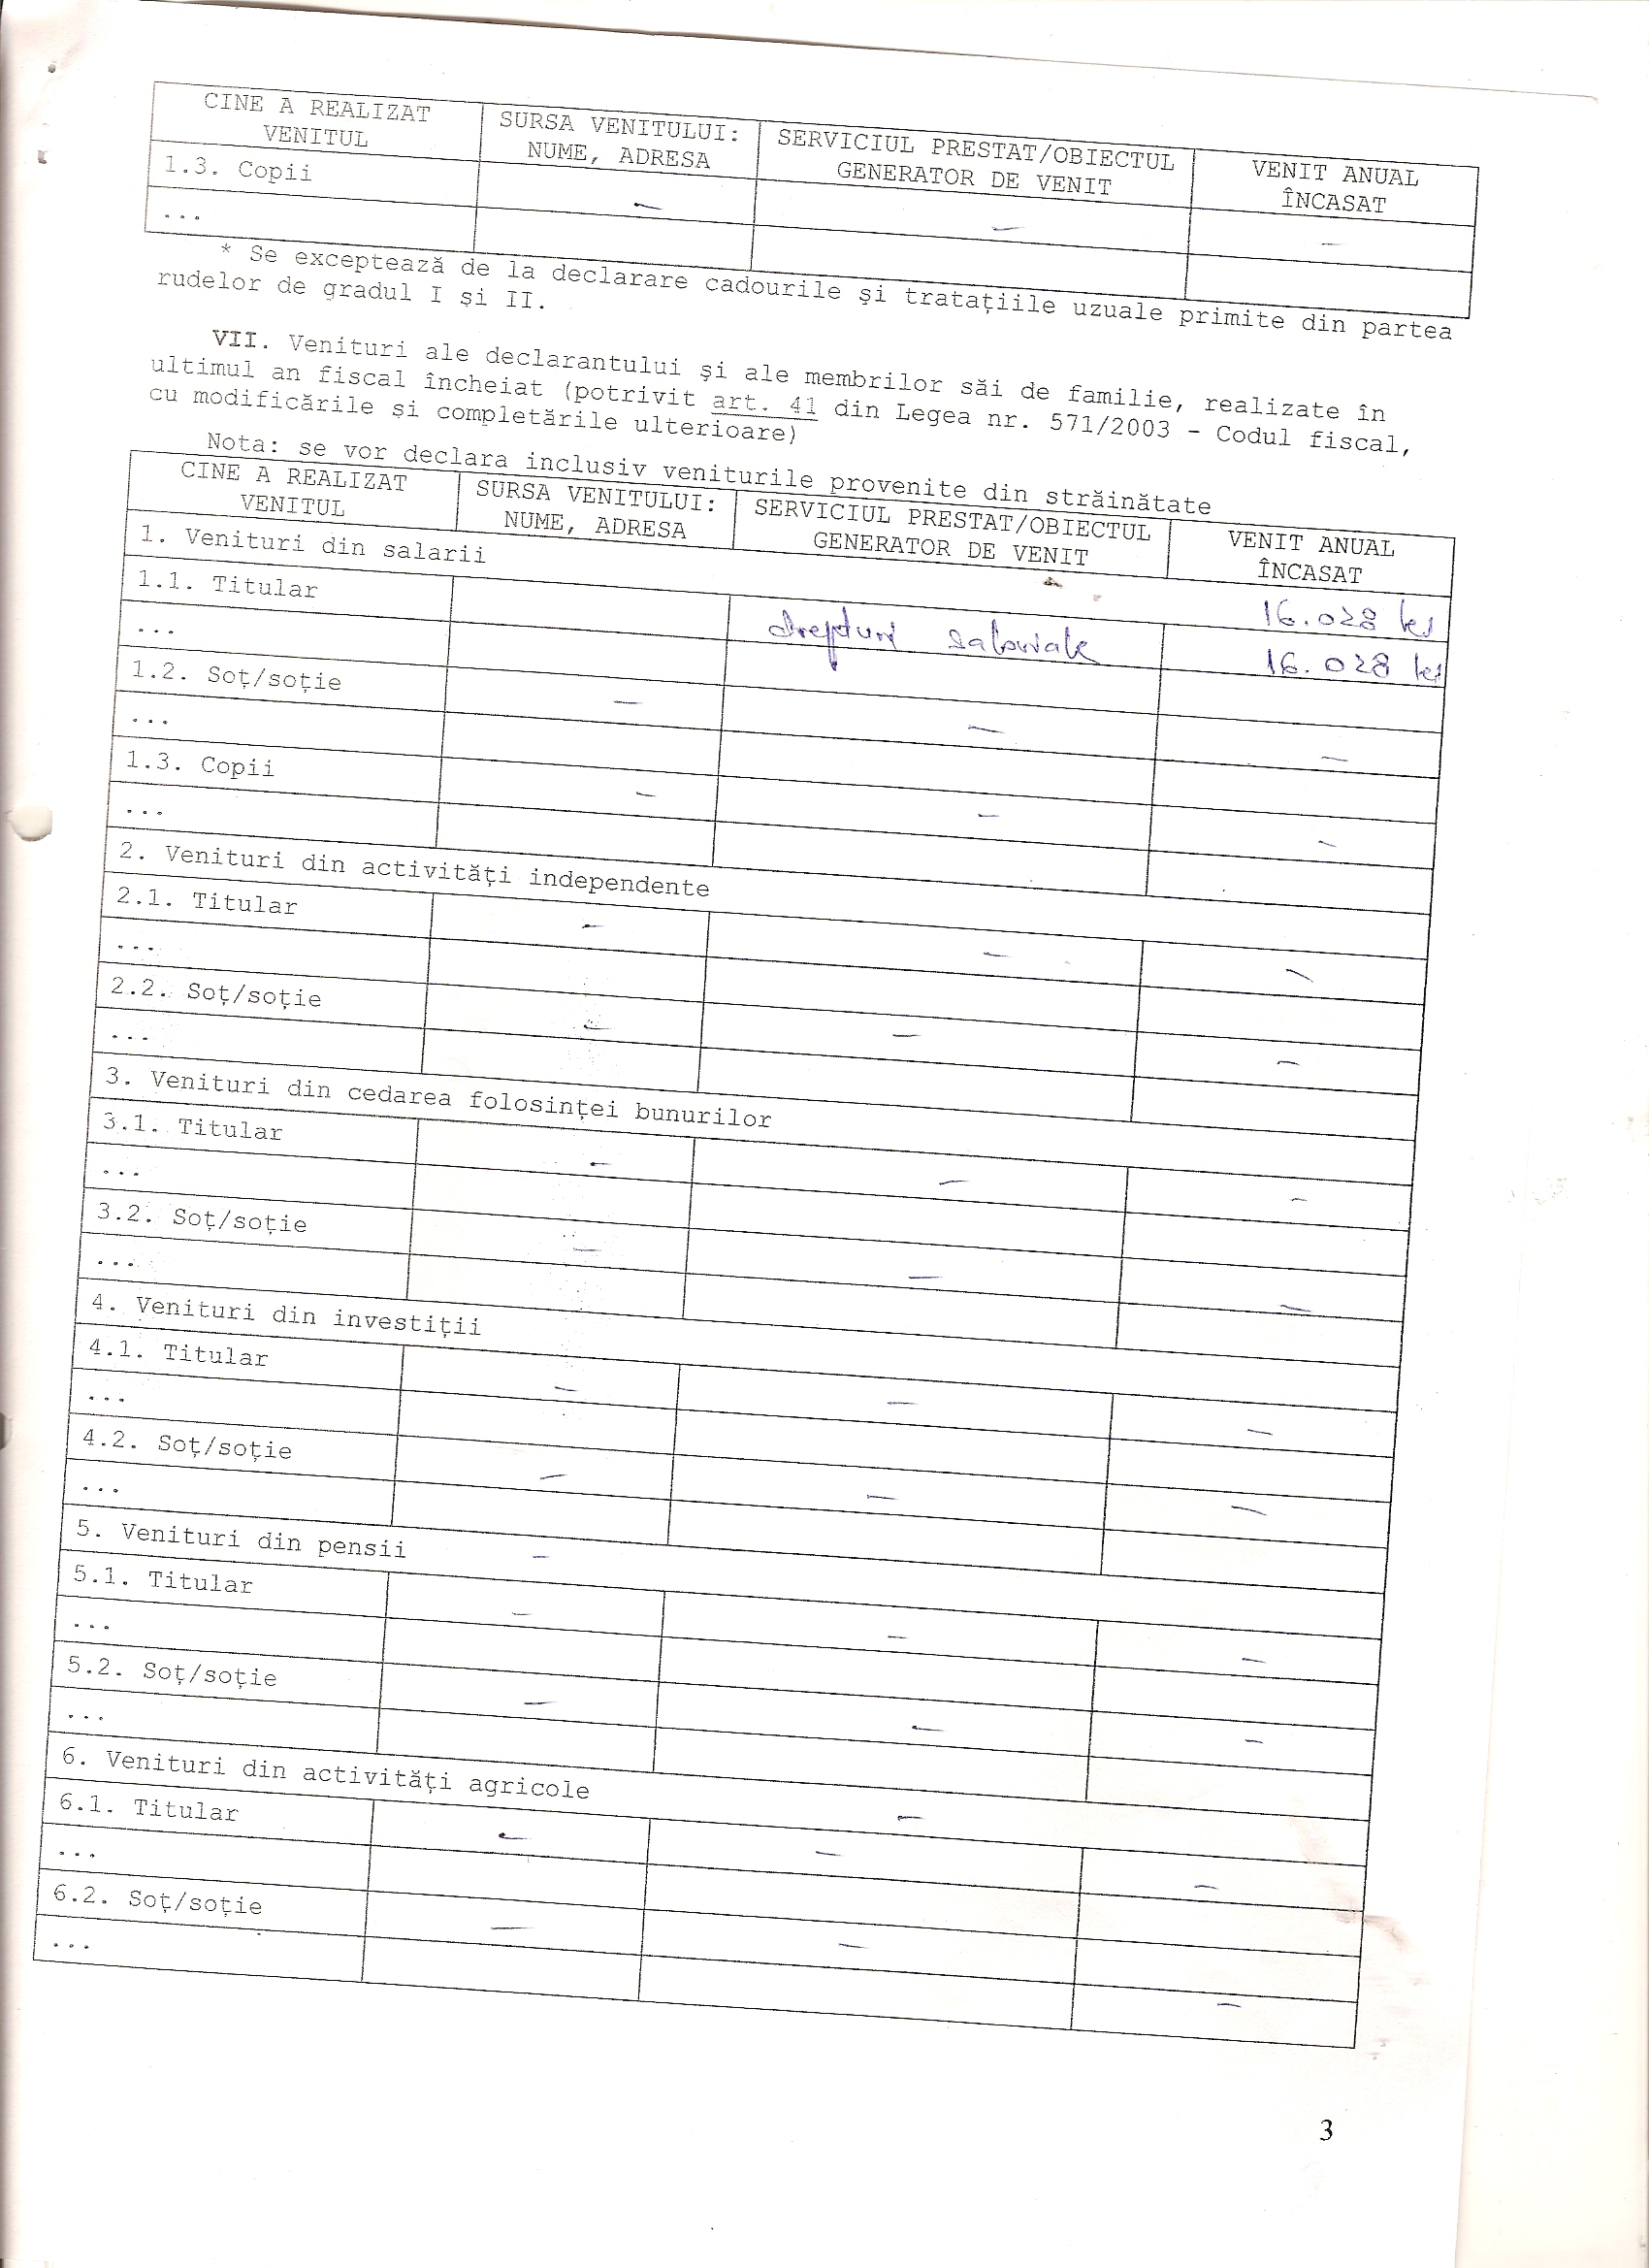 CINE A REALIZAT VENITUL | SURSA VENITULUI: NUME, ADRESA | SERVICIUL PRESTAT/OBIECTUL GENERATOR DE VENIT | VENIT ANUAL ÎNCASAT
1.3. Copii | – | – | –
...
* Se exceptează de la declarare cadourile şi trataţiile uzuale primite din partea
rudelor de gradul I şi II.
VII. Venituri ale declarantului şi ale membrilor săi de familie, realizate în
ultimul an fiscal încheiat (potrivit art. 41 din Legea nr. 571/2003 – Codul fiscal,
cu modificările şi completările ulterioare)
Nota: se vor declara inclusiv veniturile provenite din străinătate
CINE A REALIZAT VENITUL | SURSA VENITULUI: NUME, ADRESA | SERVICIUL PRESTAT/OBIECTUL GENERATOR DE VENIT | VENIT ANUAL ÎNCASAT
1. Venituri din salarii 16.028 lei
1.1. Titular | drepturi salariale | 16.028 lei
...
1.2. Soţ/soţie | – | – | –
...
1.3. Copii | – | – | –
...
2. Venituri din activităţi independente
2.1. Titular | – | – | –
...
2.2. Soţ/soţie | – | – | –
...
3. Venituri din cedarea folosinţei bunurilor
3.1. Titular | – | – | –
...
3.2. Soţ/soţie | – | – | –
...
4. Venituri din investiţii
4.1. Titular | – | – | –
...
4.2. Soţ/soţie | – | – | –
...
5. Venituri din pensii –
5.1. Titular | – | – | –
...
5.2. Soţ/soţie | – | – | –
...
6. Venituri din activităţi agricole –
6.1. Titular | – | – | –
...
6.2. Soţ/soţie | – | – | –
...
3